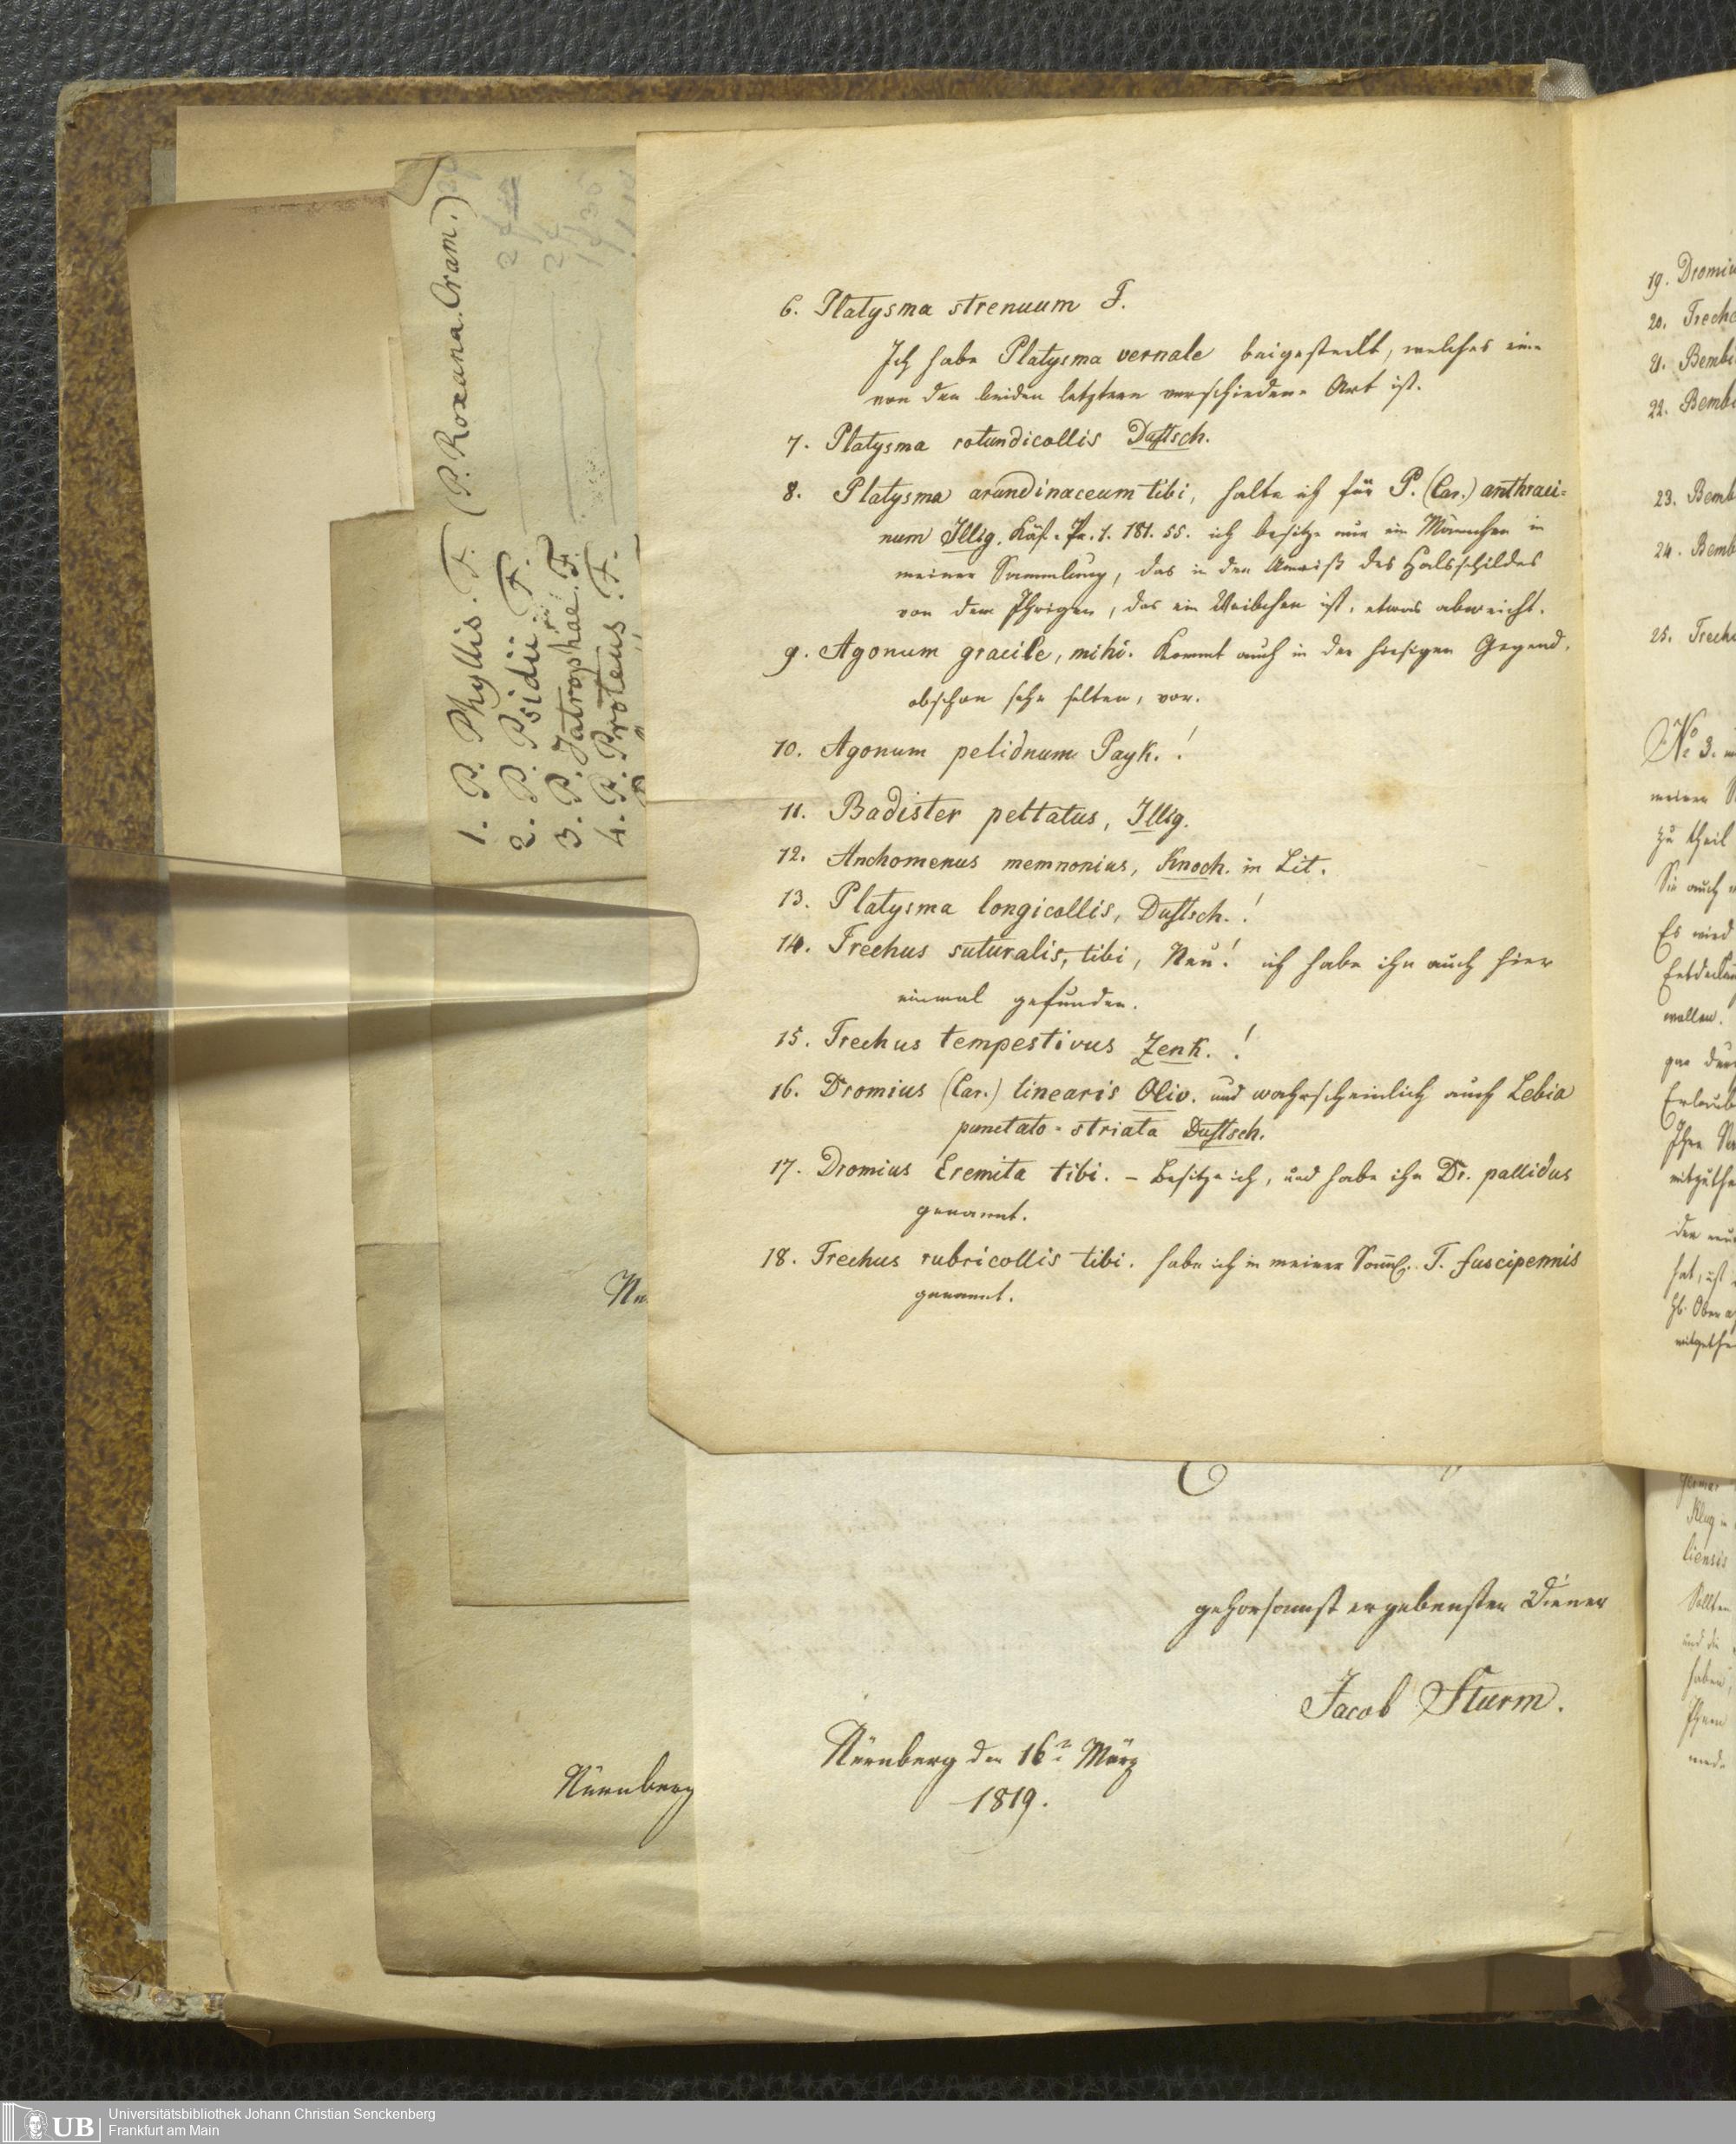 6. Platysma strenuum F.
Ich habe Platysma vernale beigesteckt, welches eine
von den beiden letztern verschiedene Art ist.
7. Platysma rotundicollis Duftsch.
8. Platysma arundinaceum tibi, halte ich für P. (Car.) anthraci-
num Illig. Käf. Pr. 1. 181. 55. ich besitze nur ein Männchen in
meiner Sammlung, das in den Umriß des Halsschildes
von dem Ihrigen, das ein Weibchen ist, etwas abweicht.
9. Agonum gracile, mihi. Kommt auch in der hiesigen Gegend,
obschon sehr selten, vor.
10. Agonum pelidnum Payk.!
11. Badister peltatus, Illig.
12. Anchomenus memnonius, Knoch. in Lit.
13. Platysma longicollis, Duftsch.!
14. Trechus suturalis, tibi, Neu! ich habe ihn auch hier
einmal gefunden.
15. Trechus tempestivus Zenk.!
16. Dromius (Car.) linearis Oliv. und wahrscheinlich auch Lebia
punctato-striata Duftsch.
17. Dromius Eremita tibi. – Besitze ich, und habe ihn Dr. pallidus
genannt.
18. Trechus rubricollis tibi. habe ich in meiner T. fuscipennis
genannt.
gehorsamst ergebenster Diener
Jacob Sturm.
Nürnberg den 16 März
1819.
Nürnberg
(P. Roxana. Cram.)
1. P. Phyllis. F.
2. P. Psidii. F.
3. P. Jatrophae. F.
4. P. Proteus. F.
19. Dromiu
20. Trech
21. Bemb
22. Bemb
23. Bemb
24. Bemb
25. Trech
No 3.
meiner
zu theil
Sie auch
Es wird
wollen.
UB
Universitätsbibliothek Johann Christian Senckenberg
Frankfurt am Main